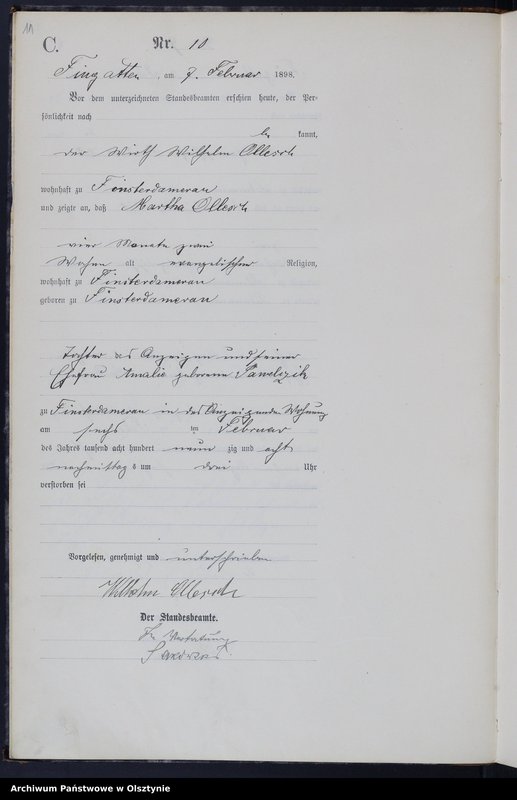 11
C.
Nr. 10
Fingatten, am 7. Februar 1898.
Vor dem unterzeichneten Standesbeamten erschien heute, der Per-
sönlichkeit nach
be kannt,
der Wirth Wilhelm Ollesch
wohnhaft zu Finsterdamerau
und zeigte an, daß Martha Ollesch
vier Monate zwei
Wochen alt evangelischer Religion,
wohnhaft zu Finsterdamerau
geboren zu Finsterdamerau
Tochter des Anzeigen und seiner
Ehefrau Amalie geborene Pawelczik
zu Finsterdamerau in des Anzeigenden Wohnung
am sechs ten Februar
des Jahres tausend acht hundert neun zig und acht
nachmittag s um drei Uhr
verstorben sei
Vorgelesen, genehmigt und unterschrieben
Wilhelm Ollesch
Der Standesbeamte.
In Vertretung
Archiwum Państwowe w Olsztynie